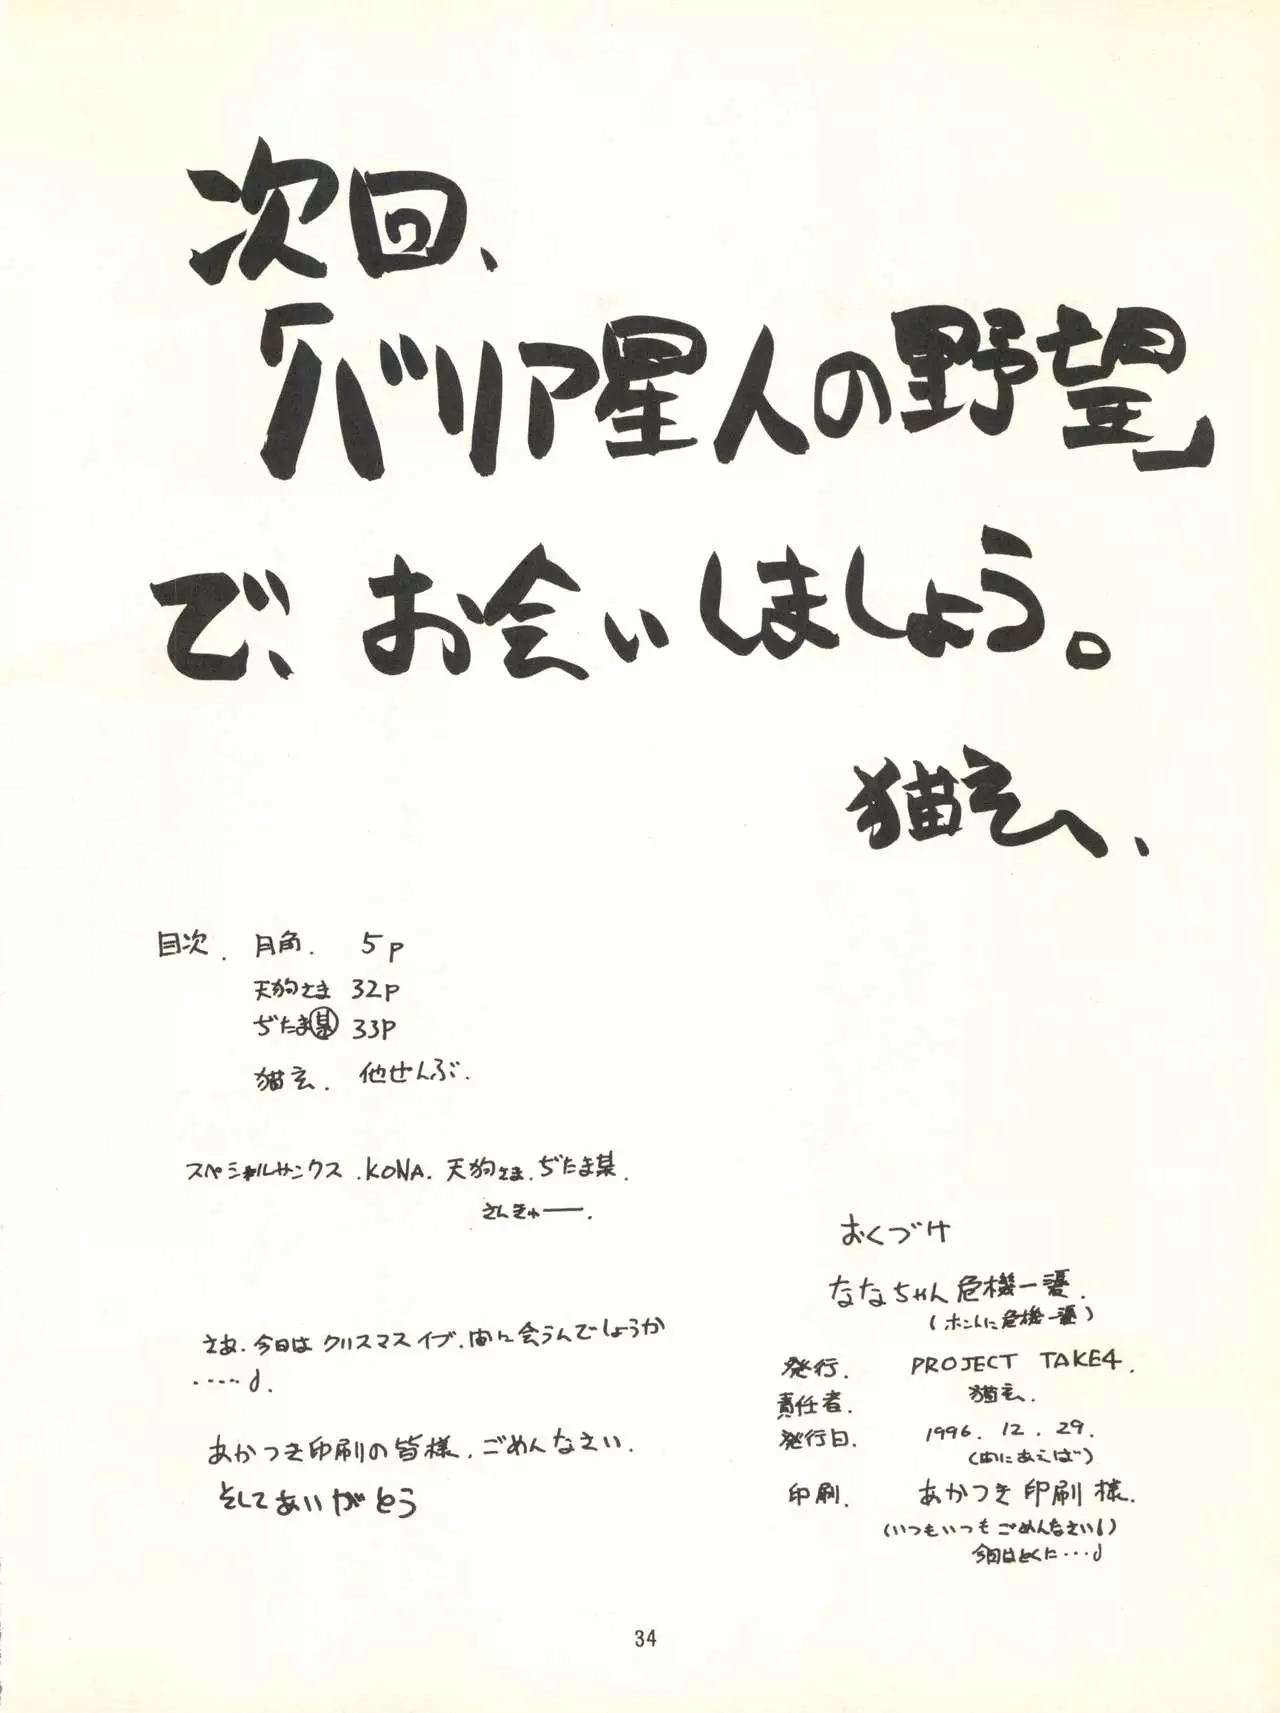 次回、
「バリア星人の野望」
で、お会いしましょう。
猫玄、
目次. 月角. 5P
天狗さま 32P
ぢたま某 33P
猫玄. 他ぜんぶ.
スペシャルサンクス.KONA. 天狗さま.ぢたま某.
さんきゅーー.
さあ、今日はクリスマスイブ、間に会うんでしょうか
・・・・・♪.
あかつき印刷の皆様、ごめんなさい.
そしてありがとう
おくづけ
ななちゃん危機一髪.
(ホントに危機一髪)
発行. PROJECT TAKE4.
責任者. 猫玄.
発行日. 1996. 12. 29.
(間にあえば)
印刷. あかつき印刷様.
(いつもいつもごめんなさい!)
今回はとくに・・・♪
34